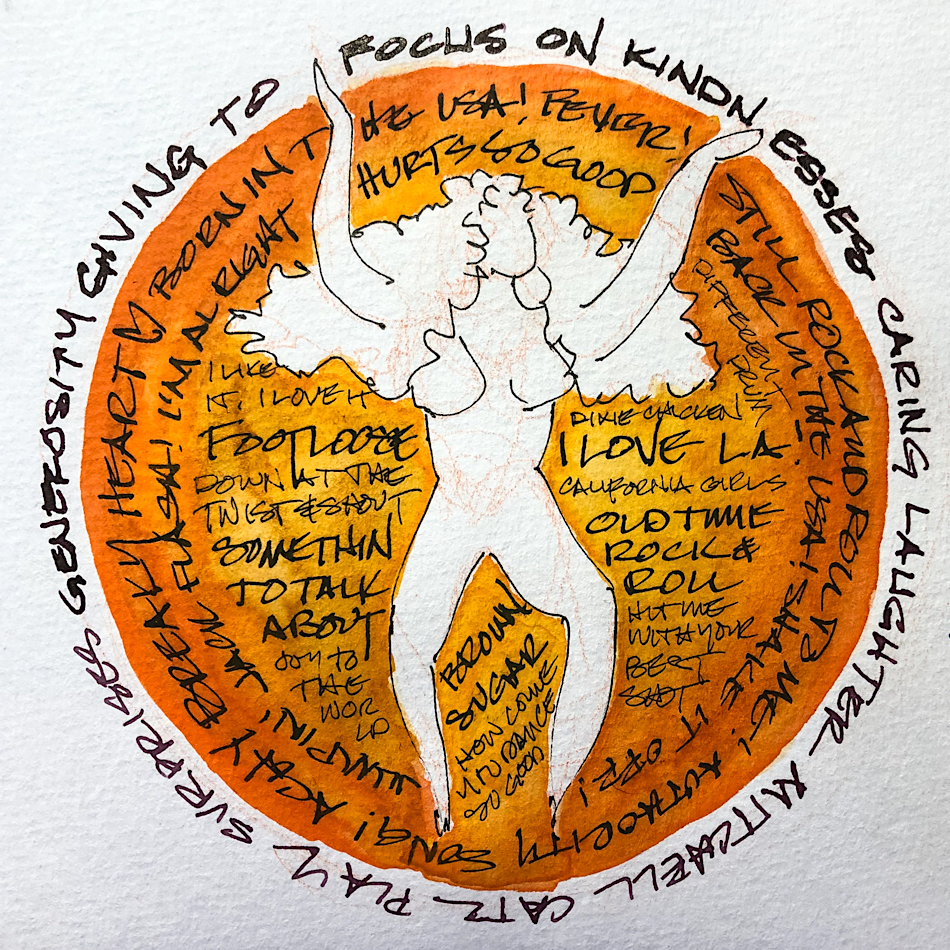 FOCUS ON KINDNESSES CARING LAUGHTER MITCHELL CATZ PLAY SURPRISES GENEROSITY GIVING TO
ACHY BREAKY HEART BORN IN THE USA! FEVER!
STILL ROCK AND ROLL TO ME! AUTHORITY SONG!
JUMPIN' JACK FLASH! I'M ALRIGHT
HURTS SO GOOD
BACK IN THE USA! SHAKE IT OFF!
DIFFERENT DRUM
I LIKE
IT, I LOVE IT
FOOTLOOSE
DOWN AT THE
TWIST & SHOUT
SOMETHIN
TO TALK
ABOUT
JOY TO
THE
WOR
LD
DIXIE CHICKEN
I LOVE LA!
CALIFORNIA GIRLS
OLD TIME
ROCK &
ROLL
HIT ME
WITH YOUR
BEST
SHOT
BROWN
SUGAR
HOW COME
YOU DANCE
SO GOOD